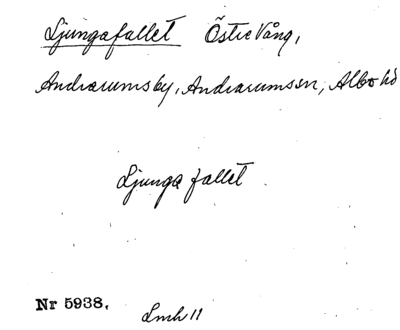 Ljungafallet Östre Vång,
Andrarumsby, Andrarums sn, Albo hd
Ljunga fallet
Nr 5938.
Lmh 11